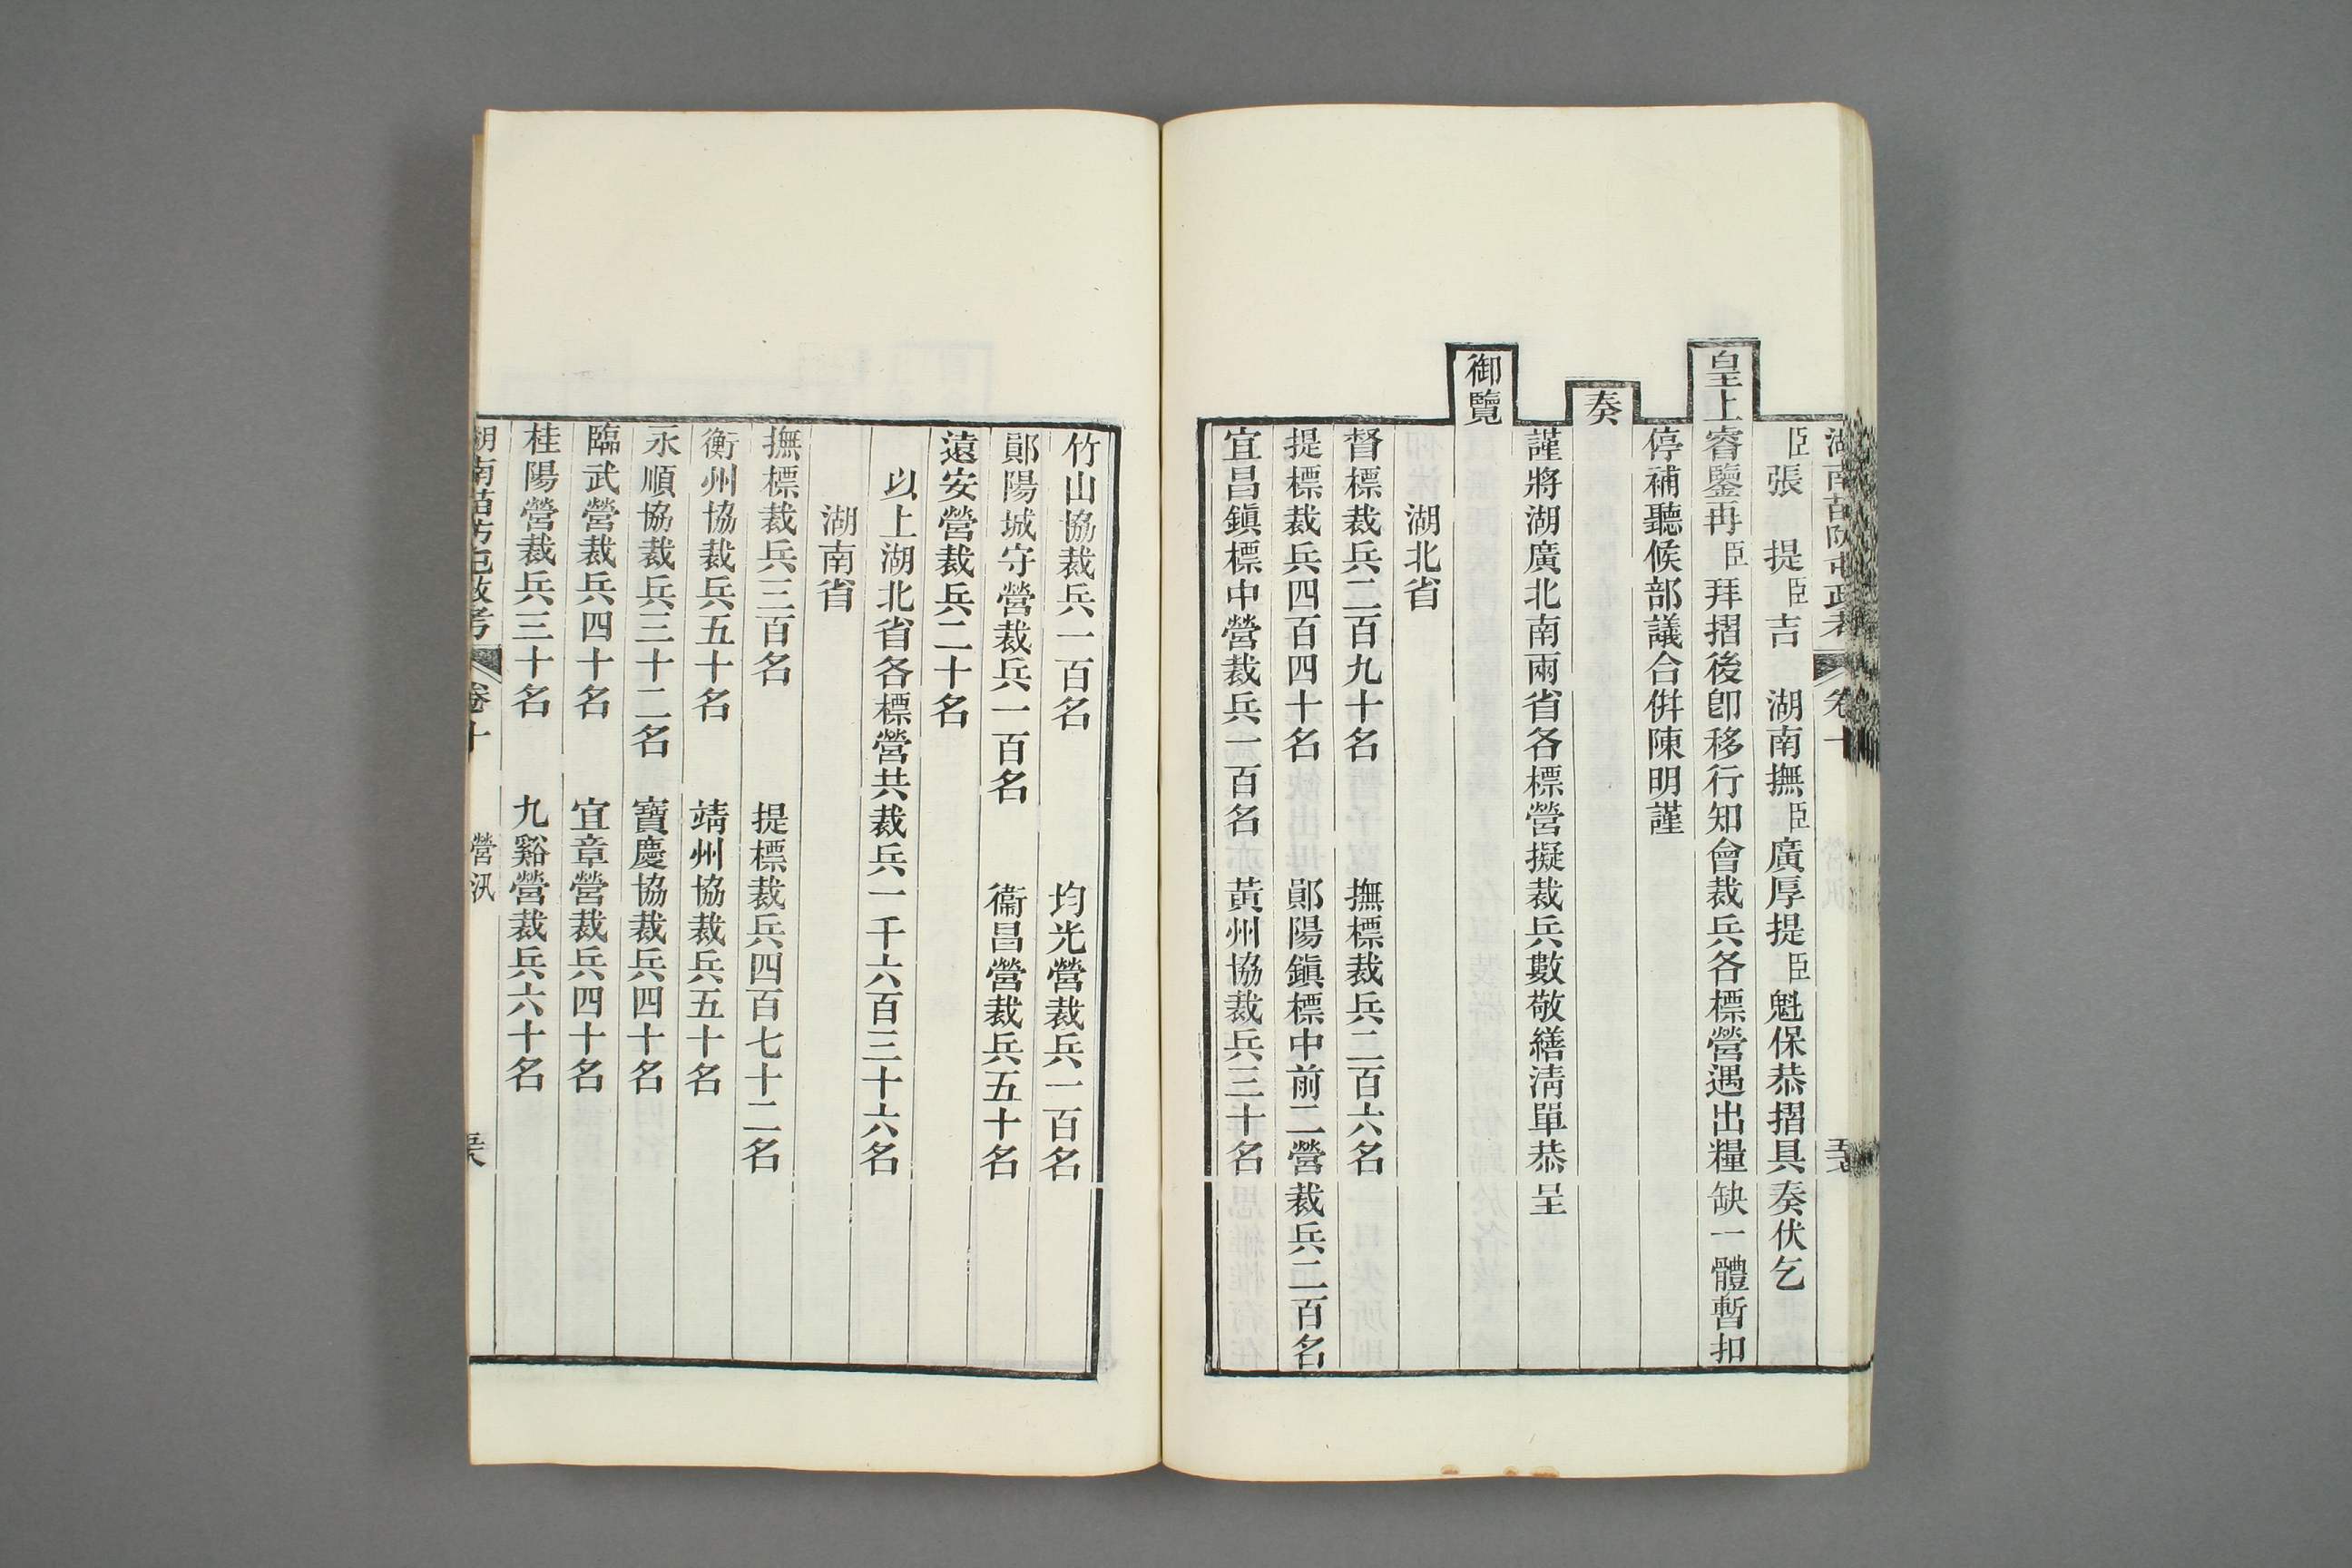 湖南苗防屯政考 卷十
臣張 提臣吉 湖南撫臣廣厚提臣魁保恭摺具奏伏乞
皇上睿鑒再臣拜摺後卽移行知會裁兵各標營遇出糧缺一體暫扣
停補聽候部議合併陳明謹
奏
謹將湖廣北南兩省各標營擬裁兵數敬繕淸單恭呈
御覽
湖北省
督標裁兵二百九十名 撫標裁兵二百六名
提標裁兵四百四十名 鄖陽鎭標中前二營裁兵二百名
宜昌鎭標中營裁兵一百名 黃州協裁兵三十名
竹山協裁兵一百名 均光營裁兵一百名
鄖陽城守營裁兵一百名 衞昌營裁兵五十名
遠安營裁兵二十名
以上湖北省各標營共裁兵一千六百三十六名
湖南省
撫標裁兵三百名 提標裁兵四百七十二名
衡州協裁兵五十名 靖州協裁兵五十名
永順協裁兵三十二名 寶慶協裁兵四十名
臨武營裁兵四十名 宜章營裁兵四十名
桂陽營裁兵三十名 九谿營裁兵六十名
湖南苗防屯政考 卷十 營汛